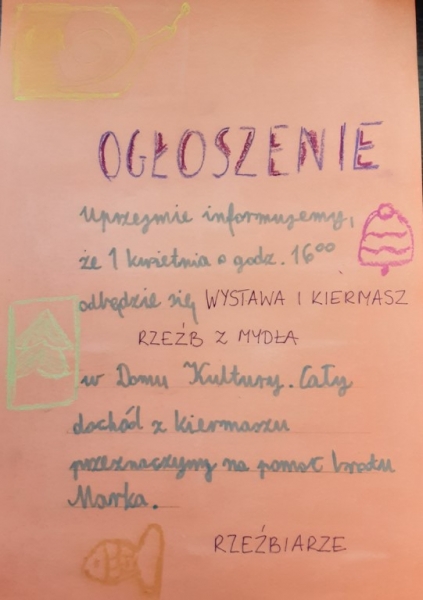 OGŁOSZENIE
Uprzejmie informujemy,
że 1 kwietnia o godz. 16⁰⁰
odbędzie się WYSTAWA I KIERMASZ
RZEŹB Z MYDŁA
w Domu Kultury. Cały
dochód z kiermaszu
przeznaczymy na pomoc bratu
Marka.
RZEŹBIARZE